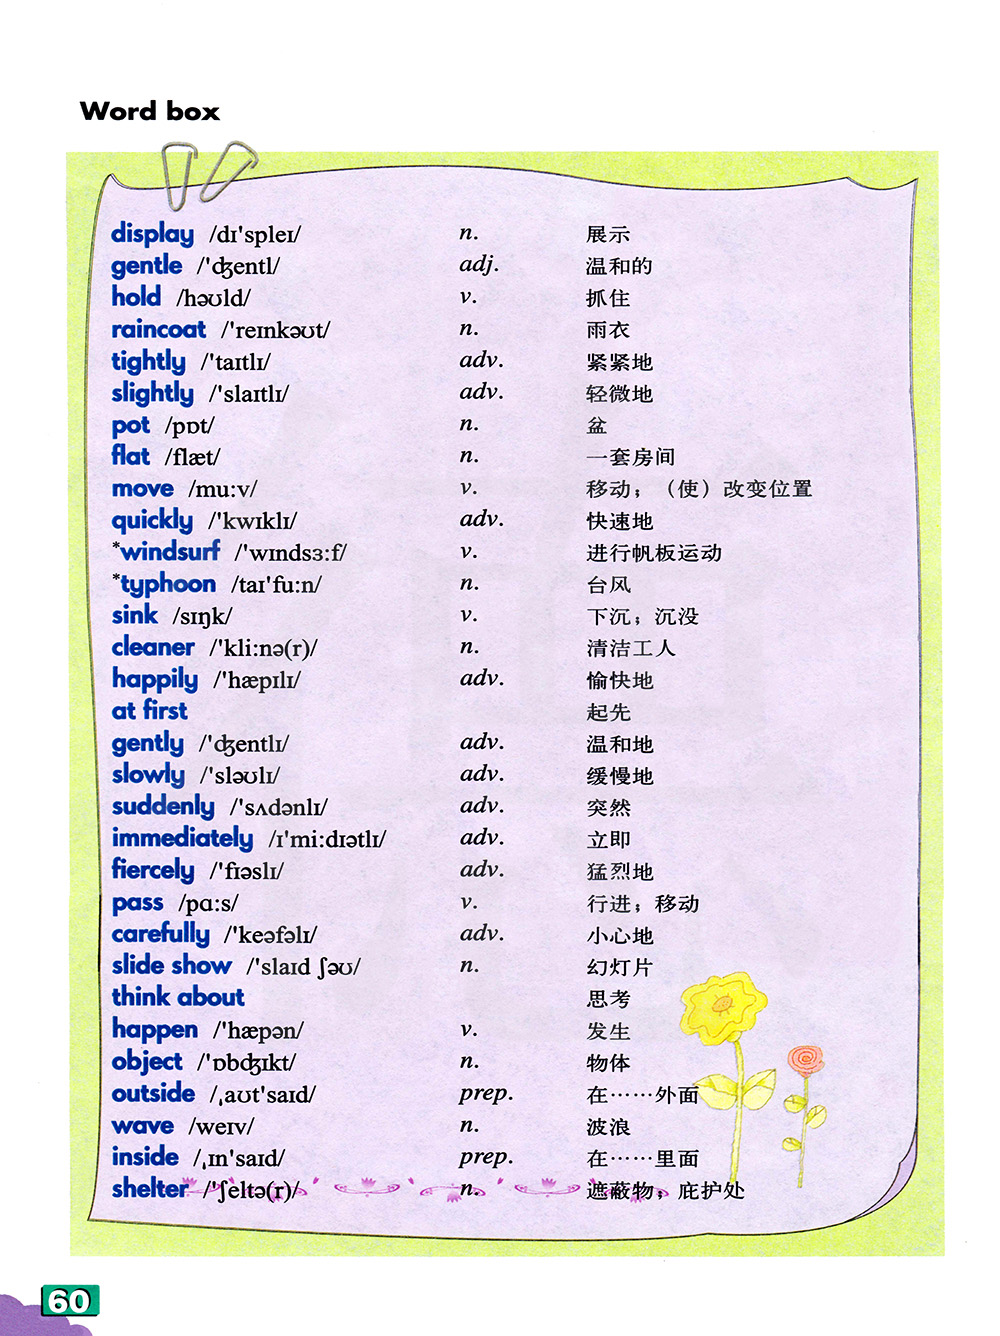 Word box
display /dɪ'spleɪ/ n. 展示
gentle /'ʤentl/ adj. 温和的
hold /həʊld/ v. 抓住
raincoat /'reɪnkəʊt/ n. 雨衣
tightly /'taɪtlɪ/ adv. 紧紧地
slightly /'slaɪtlɪ/ adv. 轻微地
pot /pɒt/ n. 盆
flat /flæt/ n. 一套房间
move /mu:v/ v. 移动；（使）改变位置
quickly /'kwɪklɪ/ adv. 快速地
*windsurf /'wɪndsɜ:f/ v. 进行帆板运动
*typhoon /taɪ'fu:n/ n. 台风
sink /sɪŋk/ v. 下沉；沉没
cleaner /'kli:nə(r)/ n. 清洁工人
happily /'hæpɪlɪ/ adv. 愉快地
at first 起先
gently /'ʤentlɪ/ adv. 温和地
slowly /'sləʊlɪ/ adv. 缓慢地
suddenly /'sʌdənlɪ/ adv. 突然
immediately /ɪ'mi:dɪətlɪ/ adv. 立即
fiercely /'fɪəslɪ/ adv. 猛烈地
pass /pɑ:s/ v. 行进；移动
carefully /'keəfəlɪ/ adv. 小心地
slide show /'slaɪd ʃəʊ/ n. 幻灯片
think about 思考
happen /'hæpən/ v. 发生
object /'ɒbʤɪkt/ n. 物体
outside /ˌaʊt'saɪd/ prep. 在……外面
wave /weɪv/ n. 波浪
inside /ˌɪn'saɪd/ prep. 在……里面
shelter /'ʃeltə(r)/ n. 遮蔽物；庇护处
60